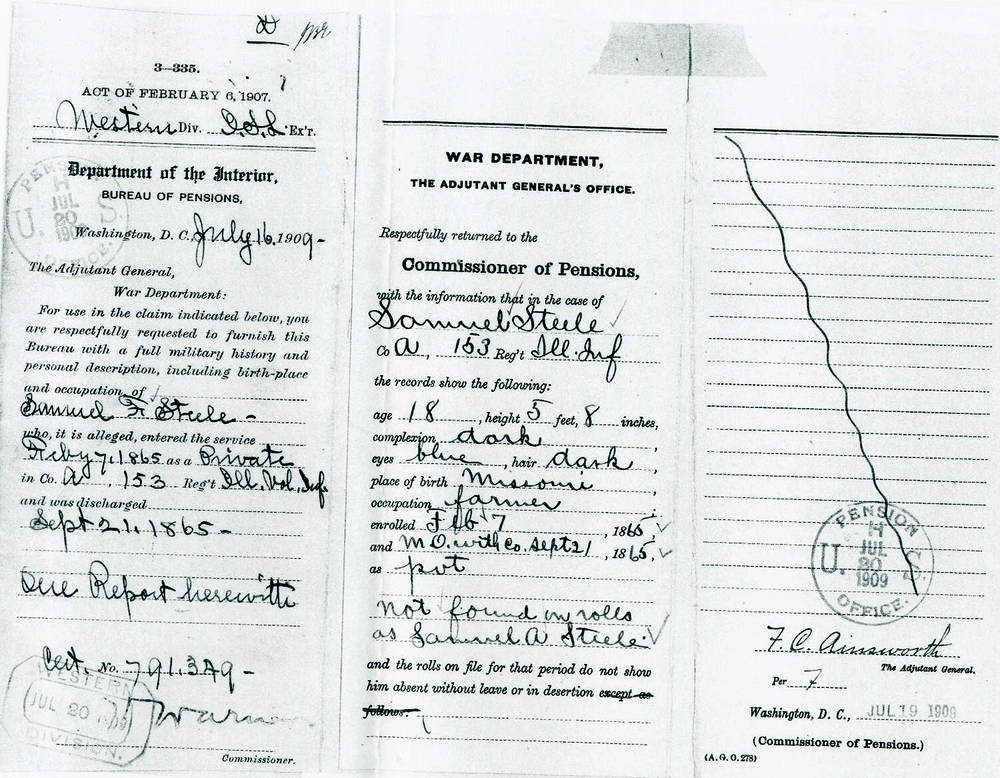 3—335.
ACT OF FEBRUARY 6, 1907.
Western Div. Ex'r.
Department of the Interior,
BUREAU OF PENSIONS,
Washington, D. C. July 16, 1909-
PENSION OFFICE.
U. S.
H
JUL
20
1909
The Adjutant General,
War Department:
For use in the claim indicated below, you
are respectfully requested to furnish this
Bureau with a full military history and
personal description, including birth-place
and occupation, of
Samuel F Steele -
who, it is alleged, entered the service
Feby 7, 1865 as a Private
in Co. A, 153 Reg't Ill. Vol. Inf
and was discharged
Sept 21, 1865 -
See Report herewith
Cert. No. 791,349-
WESTERN
JUL 20 1909
DIVISION.
Warner
Commissioner.
WAR DEPARTMENT,
THE ADJUTANT GENERAL'S OFFICE.
Respectfully returned to the
Commissioner of Pensions,
with the information that in the case of
Samuel Steele
Co A, 153 Reg't Ill. Inf
the records show the following:
age 18, height 5 feet, 8 inches,
complexion dark,
eyes blue, hair dark,
place of birth Missouri,
occupation farmer
enrolled Feb 7, 1865,
and M.O. with Co. Sept 21, 1865,
as pvt
not found on rolls
as Samuel A Steele
and the rolls on file for that period do not show
him absent without leave or in desertion except as
follows:
PENSION OFFICE.
U. S.
H
JUL
20
1909
F. C. Ainsworth
The Adjutant General.
Per 7
Washington, D. C., JUL 19 1909
(Commissioner of Pensions.)
(A. G. O. 278)